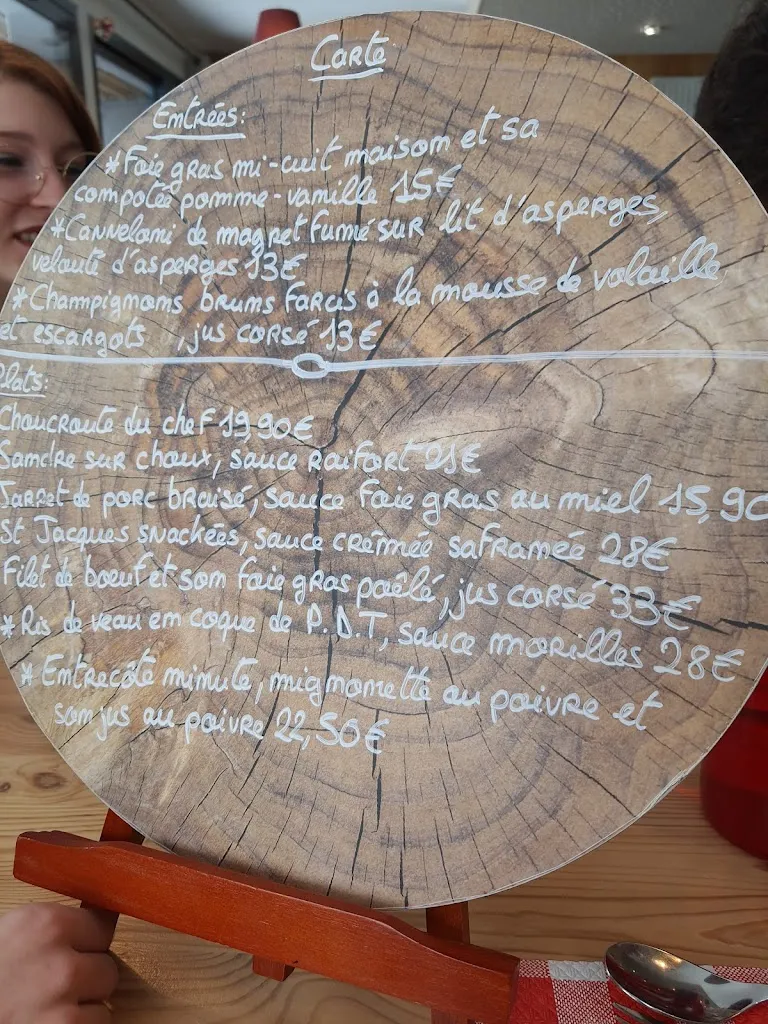 Carte
Entrées:
*Foie gras mi-cuit maison et sa
compotée pomme-vanille 15€
*Canneloni de magret fumé sur lit d'asperges,
velouté d'asperges 13€
*Champignons bruns farcis à la mousse de volaille
et escargots, jus corsé 13€
Plats:
Choucroute du chef 19,90€
Sandre sur choux, sauce raifort 21€
Jarret de porc braisé, sauce foie gras au miel 15,90
St Jacques snackées, sauce crémée safranée 28€
Filet de boeuf et son foie gras poêlé, jus corsé 33€
*Ris de veau en coque de P.D.T, sauce morilles 28€
*Entrecôte minute, mignonette au poivre et
son jus au poivre 22,50€